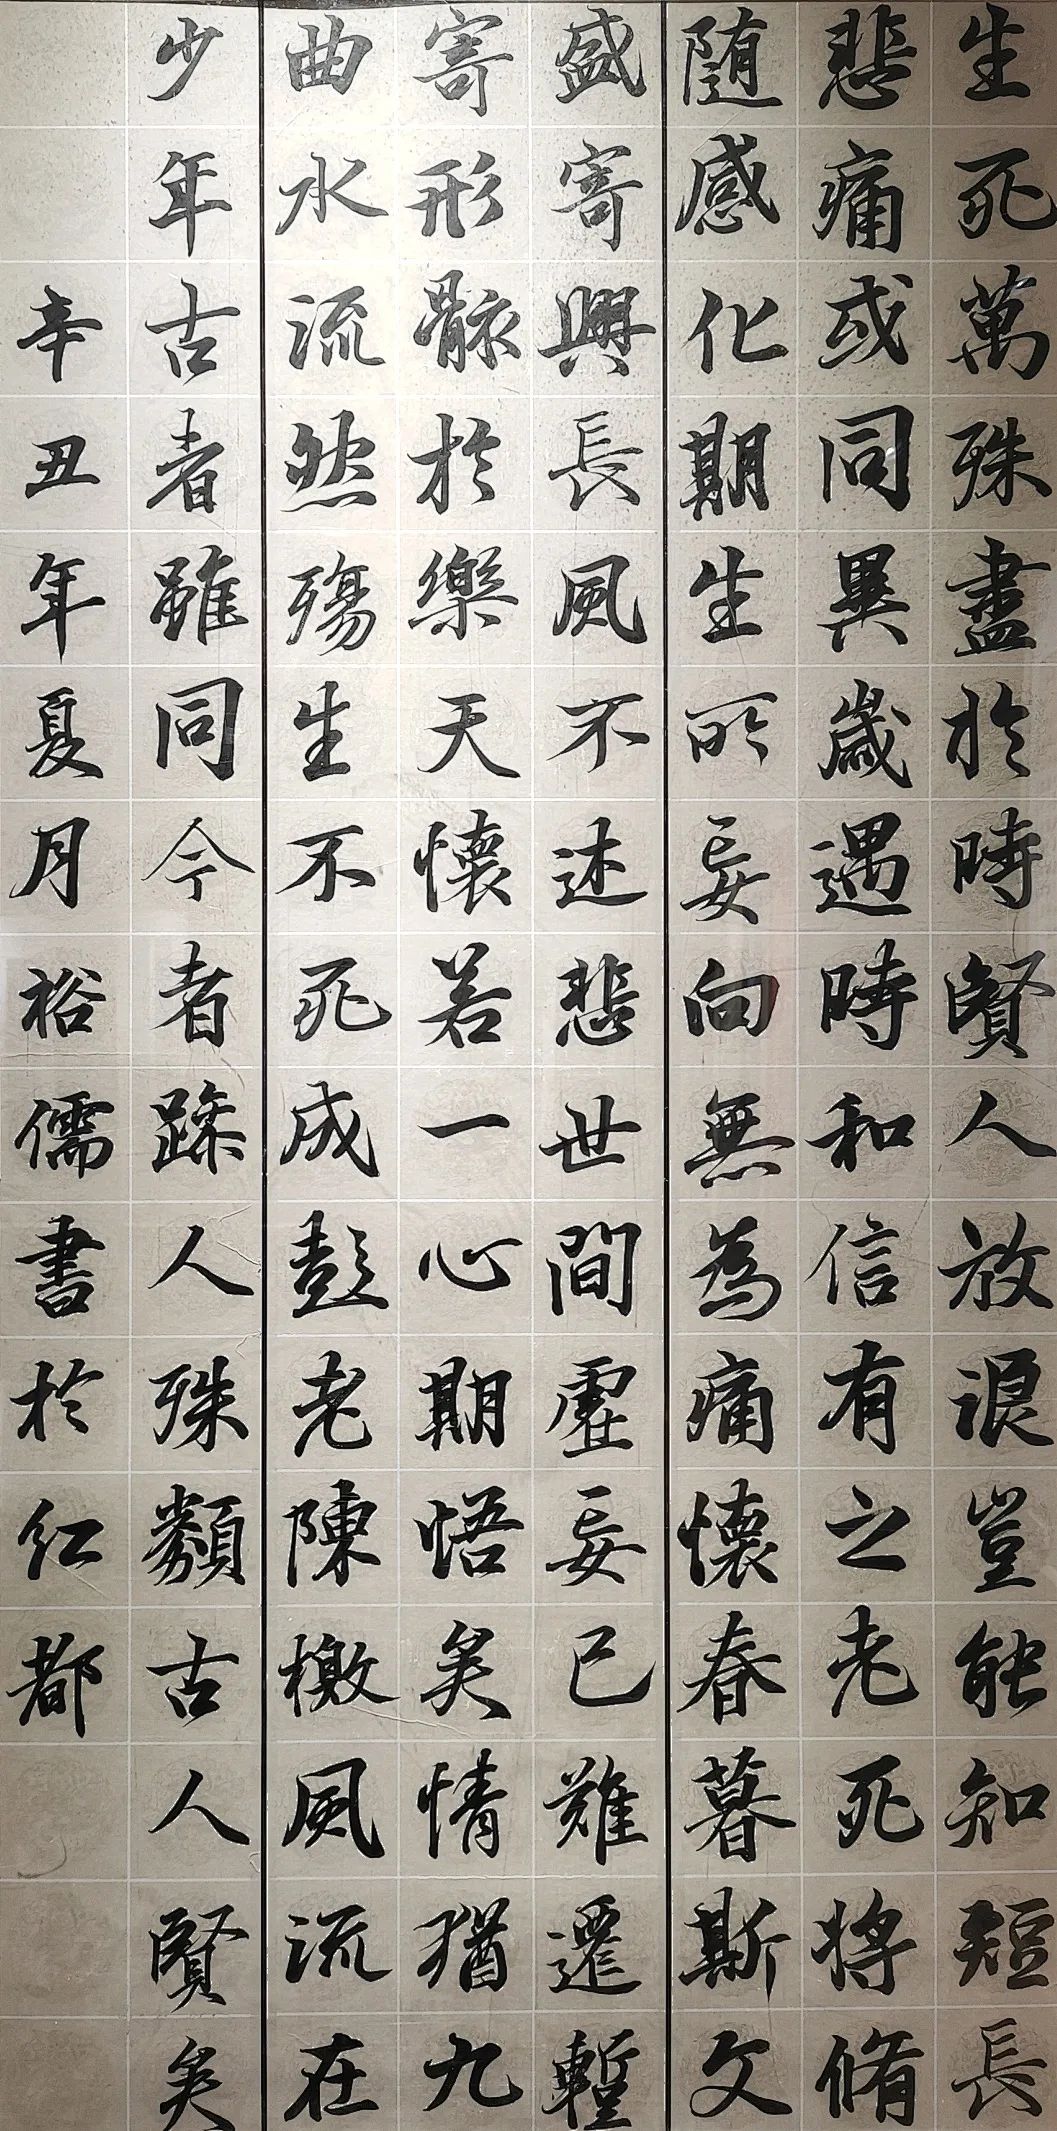 生死萬殊盡於時賢人放浪豈能知短長
悲痛或同異歲遇時和信有之老死將脩
随感化期生所妄向無為痛懷春暮斯文
盛寄興長風不述悲世間虛妄已難遷暫
寄形骸於樂天懷若一心期悟矣情猶九
曲水流然殤生不死成彭老陳檄風流在
少年古者雖同今者跡人殊類古人賢矣
辛丑年夏月裕儒書於紅都